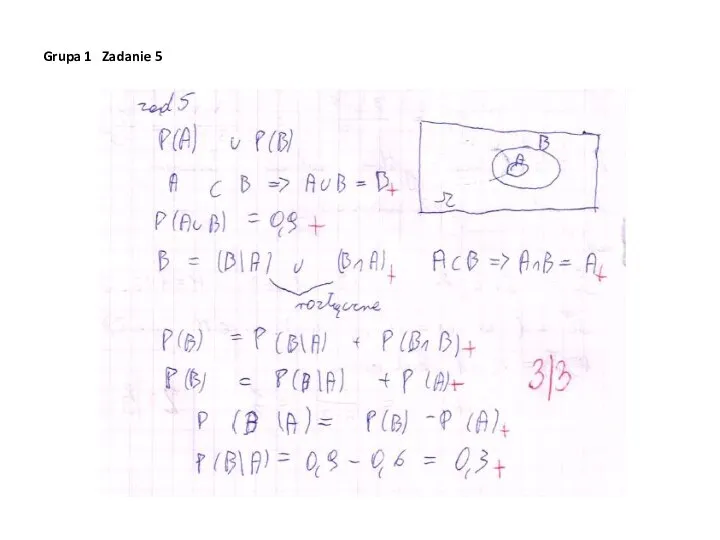 Grupa 1 Zadanie 5
zad 5
P(A) ∪ P(B)
B
A
Ω
A ⊂ B => A∪B = B +
P(A∪B) = 0,9 +
B = (B\A) ∪ (B∩A) + A⊂B => A∩B = A +
rozłączne
P(B) = P(B\A) + P(B∩B) +
P(B) = P(B\A) + P(A) + 3/3
P(B\A) = P(B) - P(A) +
P(B\A) = 0,9 - 0,6 = 0,3 +